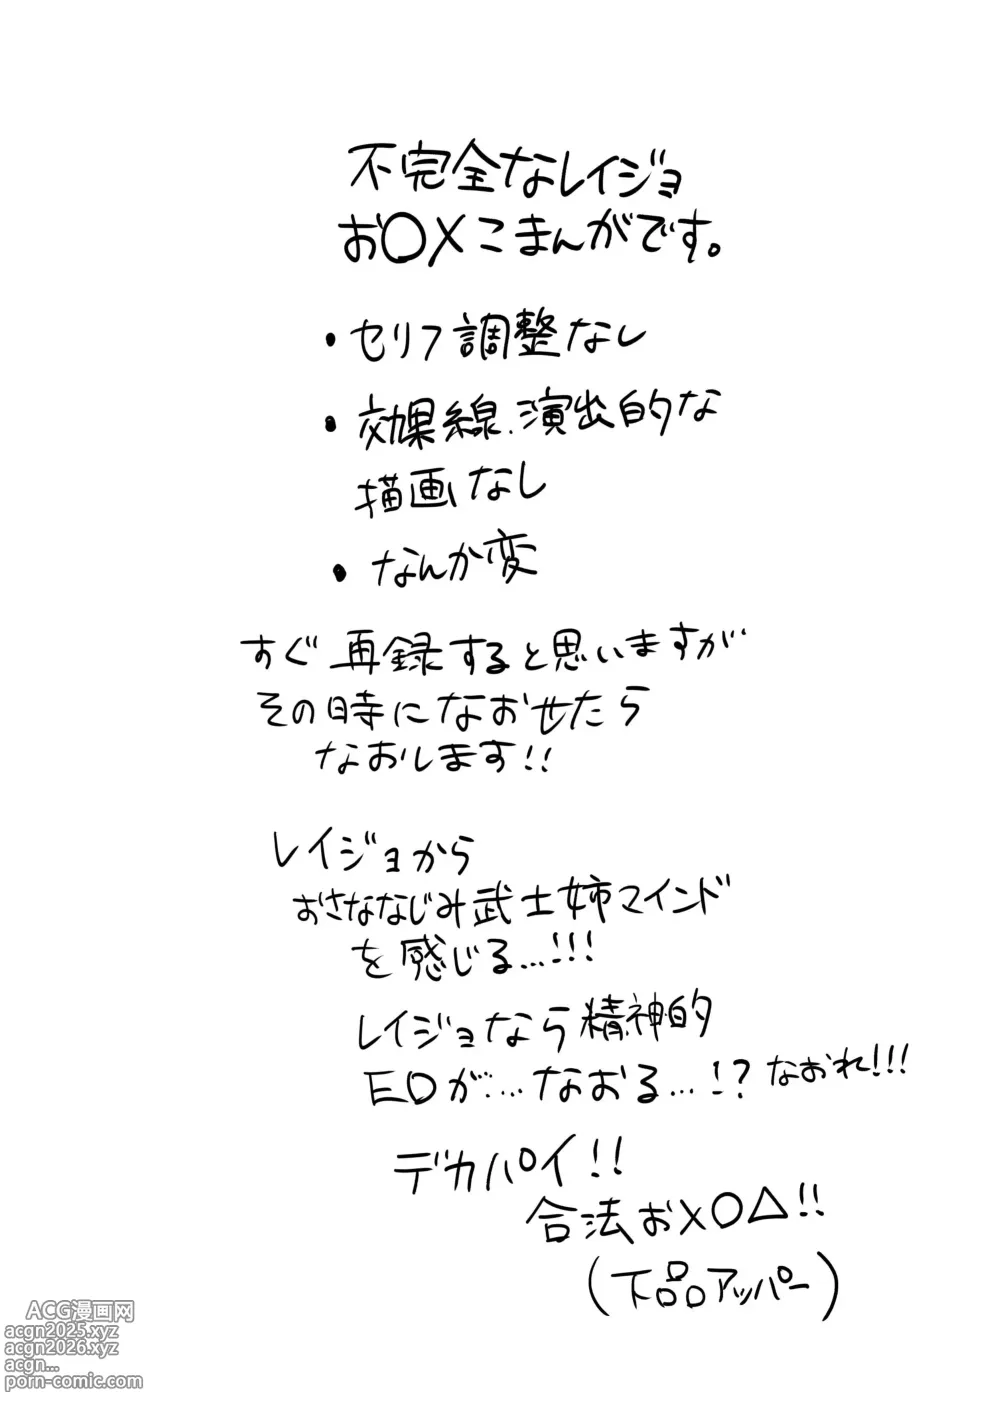 不完全なレイジョ
お〇メこまんがです。
・セリフ調整なし
・効果線、演出的な
描画なし
・なんか変
すぐ再録すると思いますが
その時になおせたら
なおします!!
レイジョから
おさななじみ武士姉マインド
を感じる…!!!
レイジョなら精神的
EDが……なおる…!?なおれ!!!
デカパイ!!
合法お×〇△!!
(下品アッパー)
ACG漫画网
acgn2025.xyz
acgn2026.xyz
acgn...
porn-comic.com